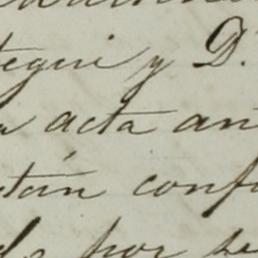 tegui y D.
a acta an
tán conf
por se